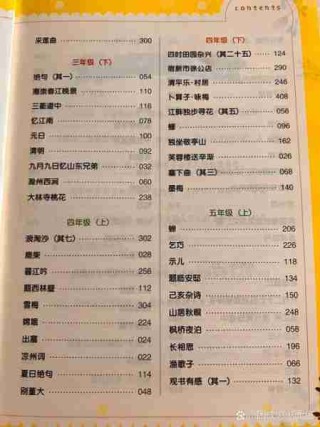 contents
采莲曲 300
三年级（下）
绝句（其一） 054
惠崇春江晚景 110
三衢道中 116
忆江南 078
元日 100
清明 092
九月九日忆山东兄弟 032
滁州西涧 060
大林寺桃花 238
四年级（上）
浪淘沙（其七） 302
鹿柴 028
暮江吟 256
题西林壁 112
雪梅 304
嫦娥 224
出塞 024
凉州词 022
夏日绝句 114
别董大 048
四年级（下）
四时田园杂兴（其二十五） 124
宿新市徐公店 290
清平乐·村居 246
卜算子·咏梅 408
江畔独步寻花（其五） 058
蜂 096
独坐敬亭山 042
芙蓉楼送辛渐 026
塞下曲（其三） 068
墨梅 140
五年级（上）
蝉 206
乞巧 226
示儿 118
题临安邸 134
己亥杂诗 150
山居秋暝 248
枫桥夜泊 058
长相思 196
渔歌子 066
观书有感（其一） 132